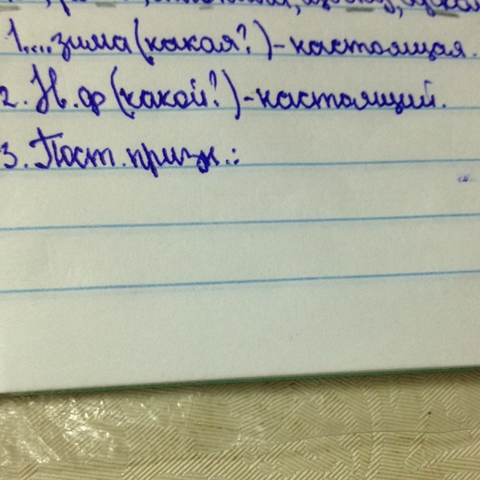 1....зима (какая?) - настоящая.
2. Н.ф (какой?) - настоящий.
3. Пост. призн.: